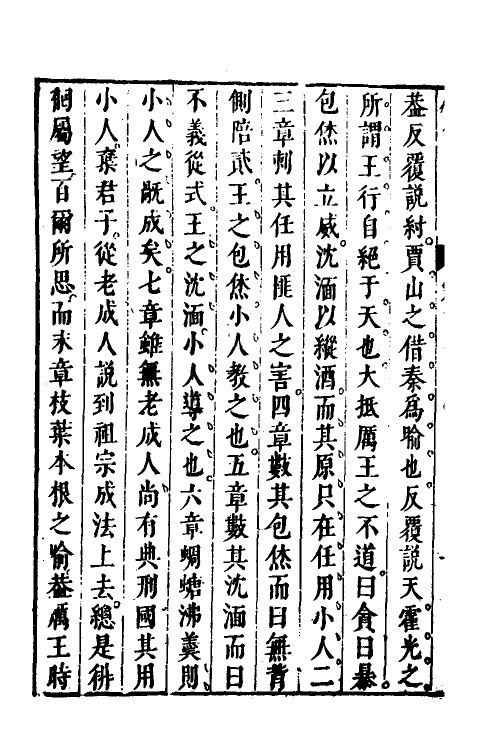 葢反覆說紂賈山之借秦爲喻也反覆說天霍光之
所謂王行自絕于天也大抵厲王之不道曰貪曰暴
包烋以立威沈湎以縱酒而其原只在任用小人二
三章刺其任用匪人之害四章數其包烋而曰無背
側陪貳王之包烋小人教之也五章數其沈湎而曰
不義從式王之沈湎小人導之也六章蜩螗沸羹則
小人之旤成矣七章雖無老成人尚有典刑國其用
小人棄君子從老成人說到祖宗成法上去總是徘
徊屬望百爾所思而末章枝葉本根之喻葢厲王時